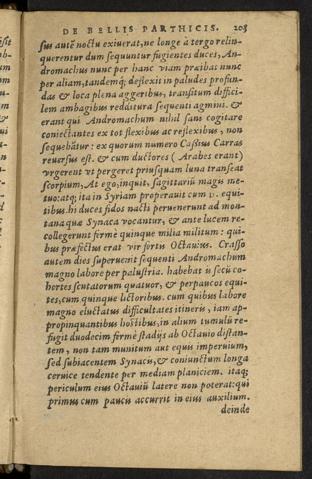 DE BELLIS PARTHICIS. 205
sus autē noctu exiuerat, ne longe à tergo relin-
querentur dum sequuntur fugientes duces, An-
dromachus nunc per hanc viam præibat nunc
per aliam, tandemq́; deflexit in paludes profun-
das & loca plena aggeribus, transitum diffici-
lem ambagibus redditura sequenti agmini. &
erant qui Andromachum nihil sani cogitare
coniectantes ex tot flexibus ac reflexibus, non
sequebātur: ex quorum numero Cassius Carras
reuersus est. & cum ductores (Arabes erant)
vrgerent vt pergeret priusquam luna transeat
scorpium, At ego, inquit, sagittariū magis me-
tuo: atq; ita in Syriam properauit cum D. equi-
tibus. hi duces fidos nacti peruenerunt ad mon-
tana quæ Synaca vocantur, & ante lucem re-
collegerunt firmè quinque milia militum: qui-
bus præfectus erat vir fortis Octauius. Crasso
autem dies superuenit sequenti Andromachum
magno labore per palustria. habebat is secū co-
hortes scutatorum quatuor, & perpaucos equi-
tes, cum quinque lictoribus. cum quibus labore
magno eluctatus difficultates itineris, iam ap-
propinquantibus hostibus, in alium tumulū re-
fugit duodecim fermè stadijs ab Octauio distan-
tem, non tam munitum aut equis imperuium,
sed subiacentem Synacis, & coniunctum longa
ceruice tendente per mediam planiciem. itaq;
periculum eius Octauiū latere non poterat: qui
primus cum paucis accurrit in eius auxilium.
deinde